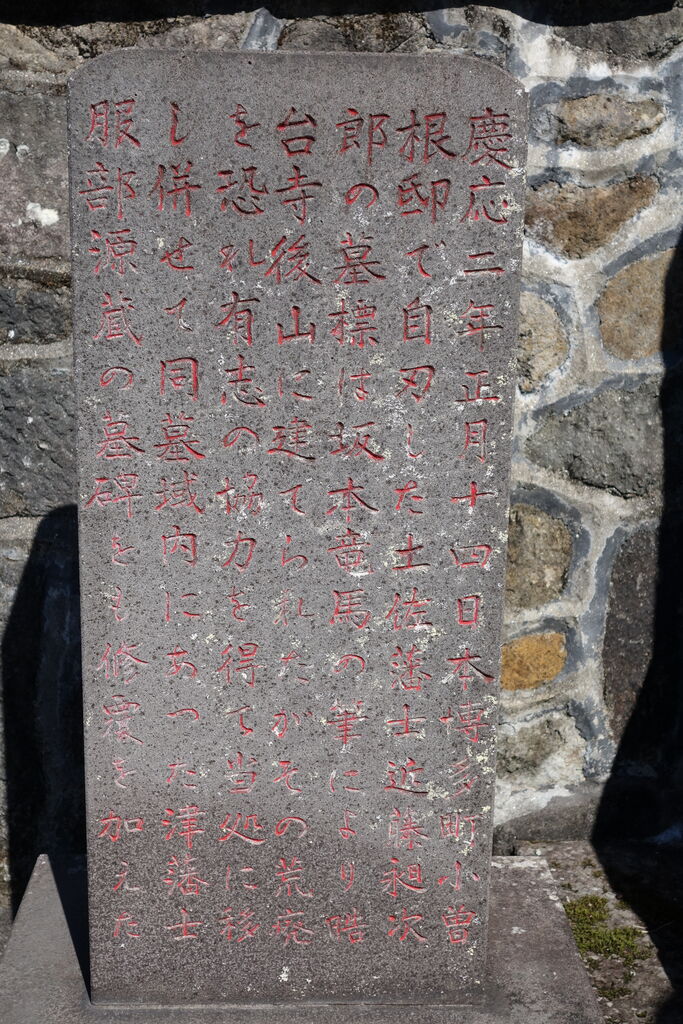 慶応二年正月十四日本博多町小曽
根邸で自刃した土佐藩士近藤昶次
郎の墓標は坂本竜馬の筆により晧
台寺後山に建てられたがその荒廃
を恐れ有志の協力を得て当処に移
し併せて同墓域内にあった津藩士
服部源蔵の墓碑をも修覆を加えた